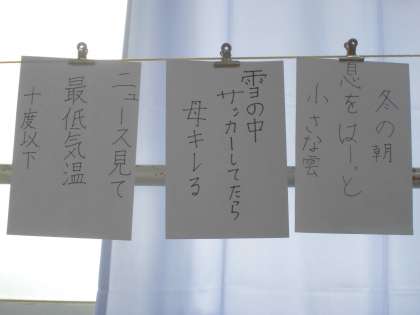 冬の朝
息をはーっと
小さな雲
雪の中
サッカーしてたら
母キレる
ニュース見て
最低気温
十度以下